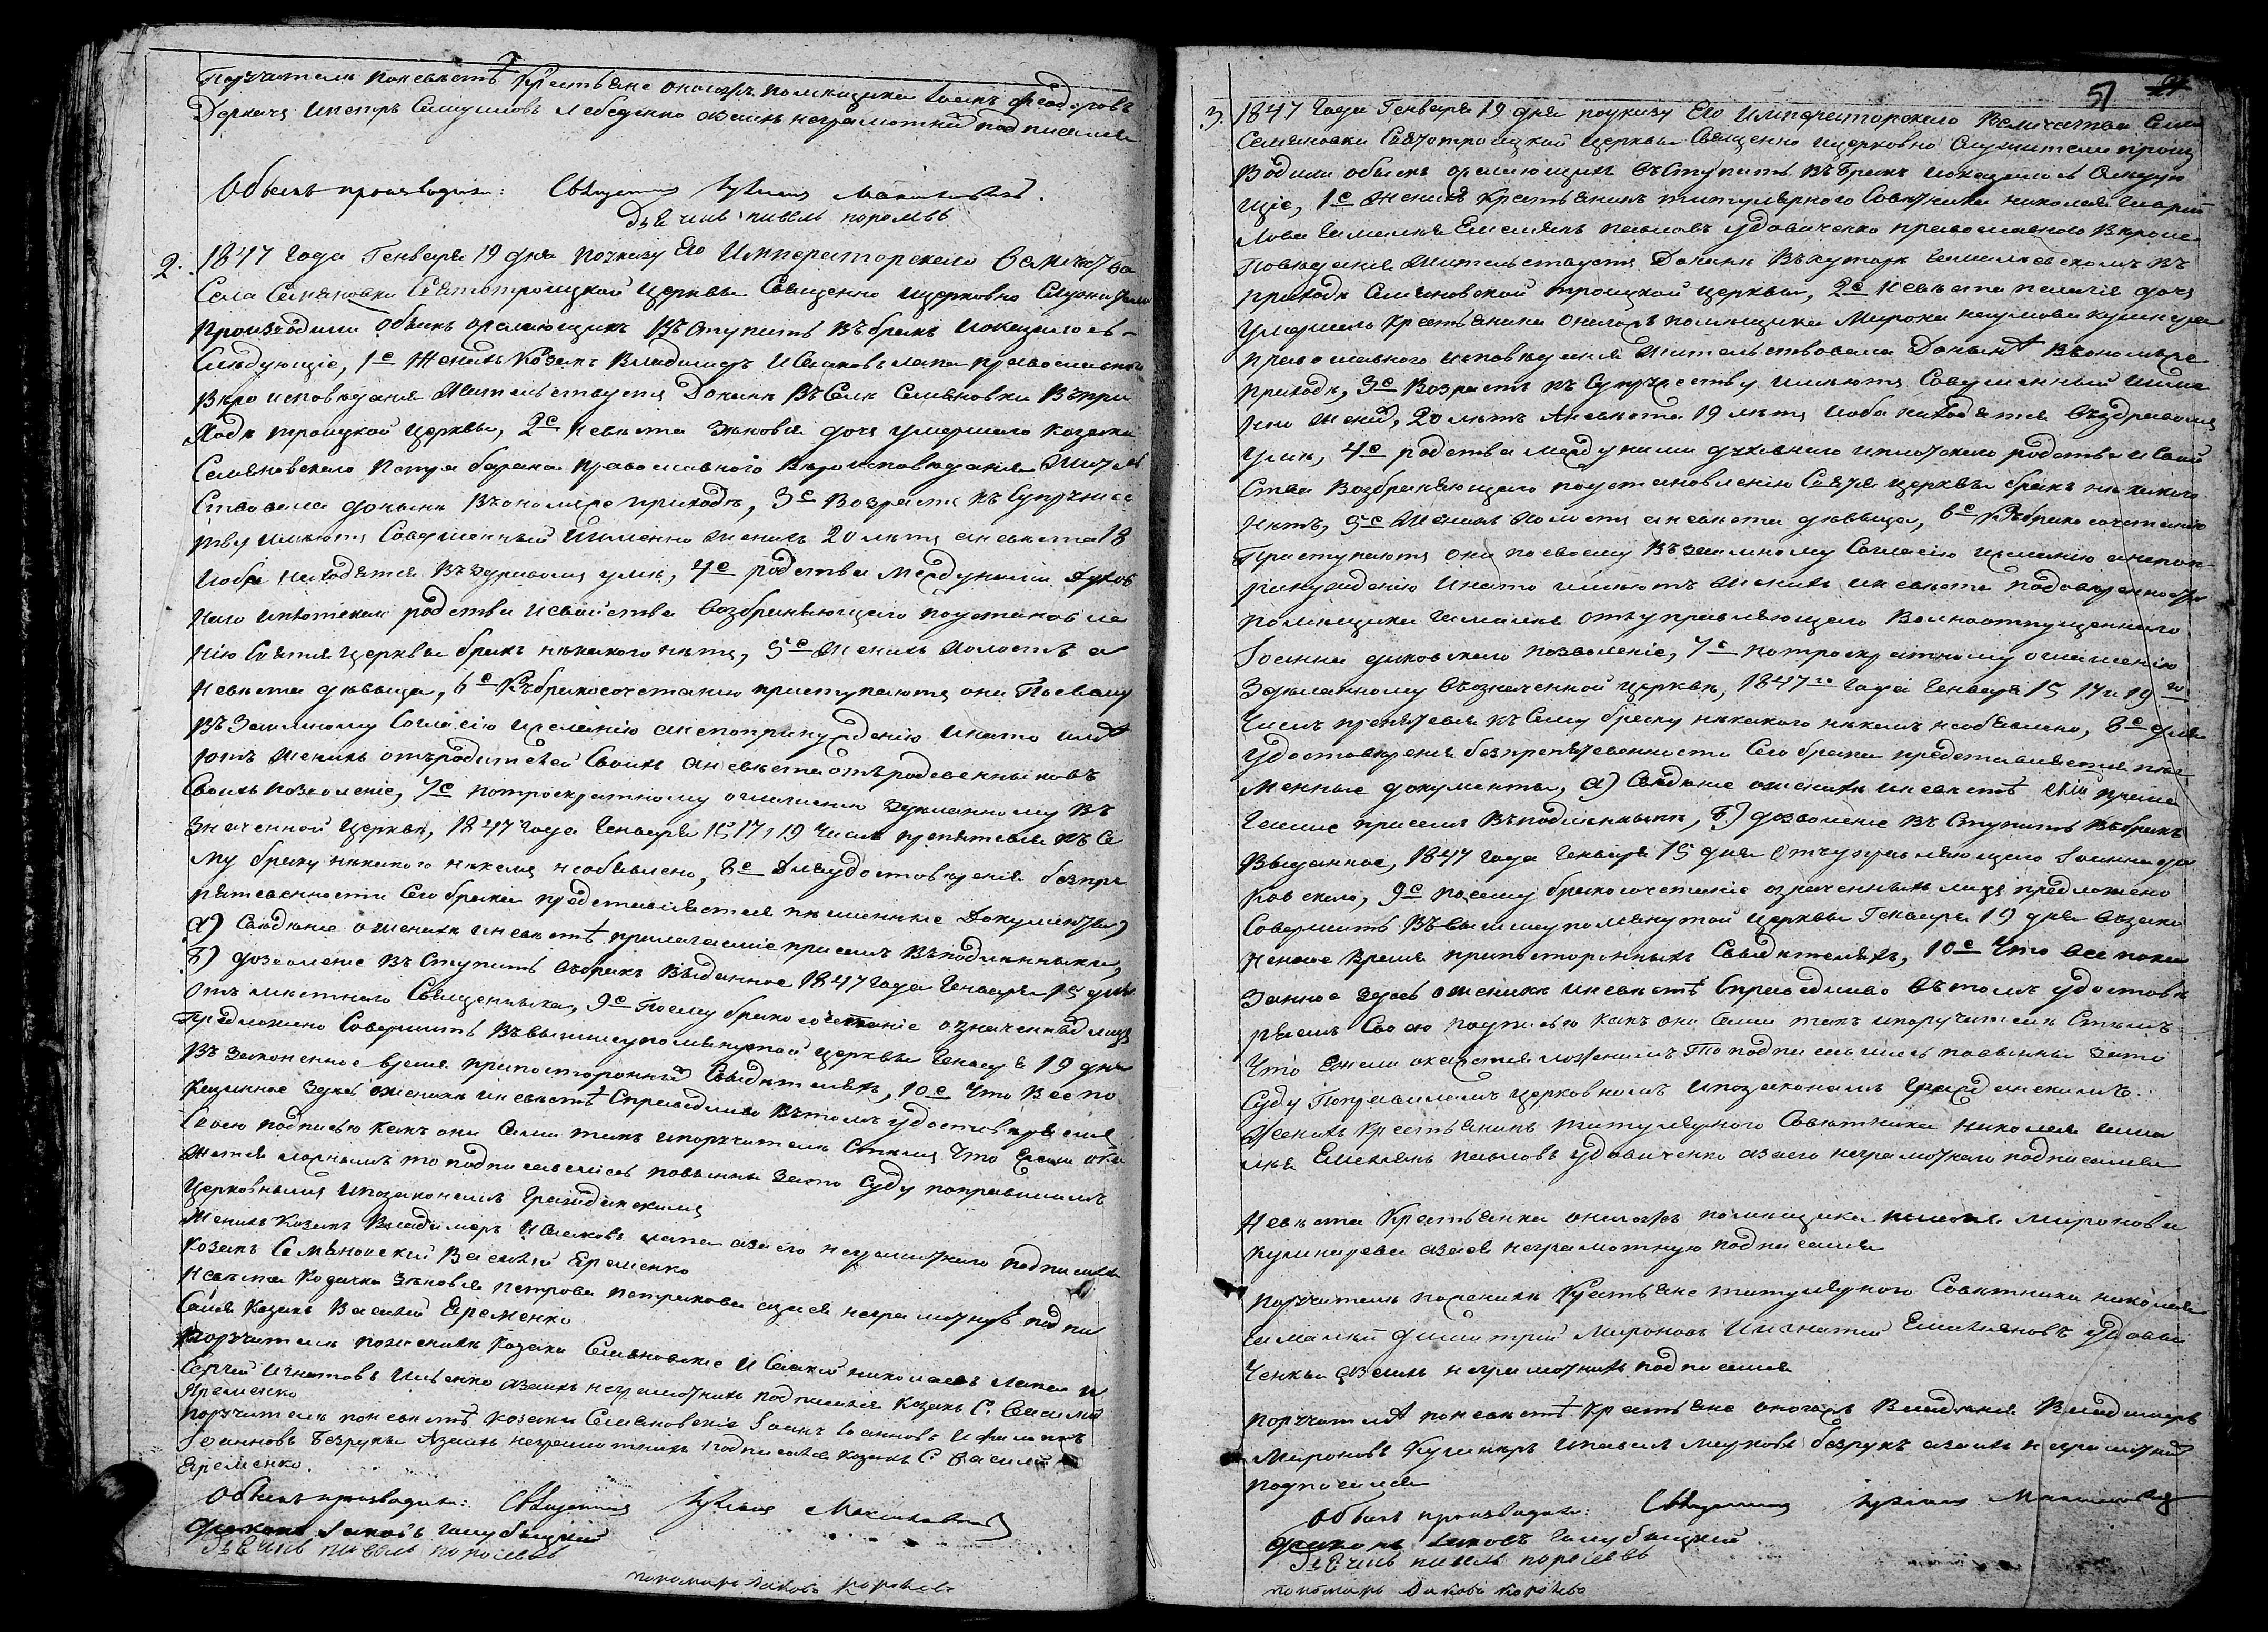 Поручители по невѣстѣ Крестьяне оногожъ помѣщика Іоанъ Феодоровъ
Деркачь и Петръ Самуиловъ Лебеденко а за ихъ неграмотній подписался
Обыскъ производили: Священникъ
Дьячокъ Павелъ Королевъ
2. 1847 Года Генваря 19 дня по указу Его Императорскаго Величества
Села Семяновки Святотроицкой Церквы Священно и церковно Служители
Производили обыскъ о желающихъ въ Ступить въ бракъ и оказалось
Слѣдующіе, 1е Женихъ Козакъ Владимеръ Исааковъ Лапа православного
Вѣро исповѣданія Жительствуетъ Донынѣ въ Селѣ Семяновки въ при
ходѣ троицкой Церквы, 2е невѣста Зѣновія дочь умершаго Козака
Семяновскаго Петра барана православного вѣроисповѣданія Житель
Ствовала донынѣ въ ономъже приходѣ, 3е Возрастъ къ Супружес
тву имѣютъ Совершенный Именно женихъ 20 лѣтъ а невѣста 18
и оба находятся въ здравомъ умѣ, 4е родства между ними духов
наго и плотскаго родства и свойства возбраняющаго по установле
нію Святыя Церквы бракъ никакого нѣтъ, 5е Женихъ Холостъ а
невѣста дѣвыца, 6е Къ бракосочетанію приступаютъ они По своему
взаимному Согласію и желанію а не по принужденію и на то имѣ
ютъ женихъ отъ родителей Своихъ а невѣста отъ родственныковъ
Своихъ позволеніе, 7е по троекратному оглашенію зделанному въ
Значенной Церквѣ, 1847 Года Генваря 15 17 и 19 Числъ препятствія къ Се
му браку никакого никемъ не объявлено, 8е Для удостовѣренія безпре
пятсвенности Сего брака представляется писменные Документы
а) Свѣдѣніе о женихѣ и невѣстѣ прилагаемые присемъ въ подлинныкѣ,
б) дозволеніе въ Ступить въ бракъ выданное 1847 Года Генваря 15 дня
отъ мѣстнаго Священныка, 9е По сему бракосочетаніе означенныхъ лицъ
Предложено Совершить въ вышеупомянутой церквы Генваря 19 дня
въ законенное время при посторонныхъ Свидѣтеляхъ, 10е Что Все по
казанное здѣсь о женихѣ и невѣстѣ Справедливо въ томъ удостовѣряемъ
Своею подписью какъ они Сами такъ и поручители Стѣмъ Что Ежели ока
жется ложнымъ то подписавшіесь повынны за то Суду поправиламъ
Церковнымъ и по законамъ Гражданскимъ
Женихъ Козакъ Владимеръ Исааковъ Лапа а за его неграмотнаго подписался
Козакъ Семяновскій Василій Еременко
Невѣста Козачка Зѣновія Петрова а за ея неграмотную подпи
сался Козакъ Василій Еременко
Поручители по женихѣ Козаки Семяновскіе Исаакій Николаевъ Лапа и
Сергей Игнатовъ Ильенко а за ихъ неграмотныхъ подписался Козакъ С. Василій
Яременко
Поручители по невѣстѣ Козаки Семяновскіе Іоанъ Іоанновъ и Филипъ
Іоанновъ Безрукы а за ихъ неграмотныхъ подписался Козакъ С. Василій
Еременко.
Обыскъ производили: Священникъ
Діаконъ Іаковъ Голубыцкій
Дьячокъ Павелъ Королевъ
Пономарь Іаковъ Королевъ
51
3. 1847 Года Генваря 19 дня по указу Его Императорскаго Величества Села
Семяновки Святотроицкой Церквы Священно и церковно Служители произ
водили обыскъ о желающихъ въ Ступить въ бракъ и оказалось Слѣдую
щіе, 1е Женихъ Крестьянинъ титулярного Совѣтника Николая
Емелянъ Павловъ Удовиченко православного вѣрои
сповѣданія Жительствуетъ Донынѣ въ хуторѣ въ
приходѣ Семяновской троицкой церквы, 2е Невѣста дочь
умершаго Крестьянина оногожъ помѣщика Мирона Наумова
православного исповѣданія Жительствовала Донынѣ въ ономъже
приходѣ, 3е Возрастъ къ Супружеству имѣютъ Совершенный Имен
но Жених, 20 лѣтъ А невѣста 19 лѣтъ и оба находятся въ здравомъ
умѣ, 4е родства между ними духовнаго и плотскаго родства и Свой
Ства возбраняющаго по установленію Святыя Церквы бракъ никакого
нѣтъ, 5е Женихъ Холостъ а невѣста дѣвыца, 6е Къ бракосочетанію
Приступаютъ они по своему взаимному Согласію и желанію а не по п
ринужденію и на то имѣютъ женихъ и невѣста
помѣщика отъ управляющаго Вольноотпущеннаго
Іоанна позволеніе, 7е по троекратному оглашенію
зделанному въ означенной Церквѣ, 1847го Года Генваря 15 17 и 19го
Числъ препятсвія къ Сему браку никакого никемъ не объявлено, 8е для
удостовѣренія безпрепятсвенности Сего брака представляется пис
менные документы, а) Свѣдѣніе о женихѣ и невѣстѣ прила
гаемые присемъ въ подлинныкѣ, б) дозволеніе въ Ступить въ бракъ
выданное, 1847 Года Генваря 15 дня отъ управляющаго Іоанна
9е по сему бракосочетаніе означенныхъ лицъ предложено
Совершить въ вышеупомянутой церквы Генваря 19 дня въ зако
ненное время при посторонныхъ Свидѣтеляхъ, 10е Что все пока
занное здѣсь о женихѣ и невѣстѣ Справедливо въ томъ удостовѣ
ряемъ Своею подписью какъ они Сами такъ и поручители Стѣмъ
Что Ежели окажется ложнымъ То подписавшіесь повынны за то
Суду По правиламъ церковнымъ и по законамъ Гражданскимъ.
Женихъ Крестьянинъ титулярного Совѣтника Николая
Емелянъ Павловъ Удовиченко а за его неграмотнаго подписался
Невѣста Крестьянка оногожъ помѣщика Миронова
а за ея неграмотную подписался
Поручители по женихѣ Крестьяне титулярного Совѣтника Николая
Димитрій Мироновъ и Игнатій Емельяновъ Удови
ченкы а за ихъ неграмотныхъ подписался
Поручители по невѣстѣ Крестьяне оногожъ Владимеръ
Мироновъ и Павелъ безрукъ а за ихъ неграмотній
подписался
Обыскъ производили: Священникъ
Діаконъ Іаковъ Голубыцкій
Дьячокъ Павелъ Королевъ
Пономарь Іаковъ Королевъ